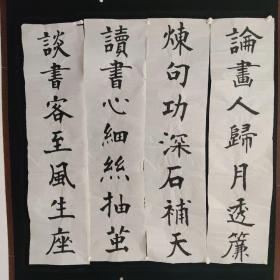 論畫人歸月透簾
煉句功深石補天
讀書心細絲抽繭
談書客至風生座